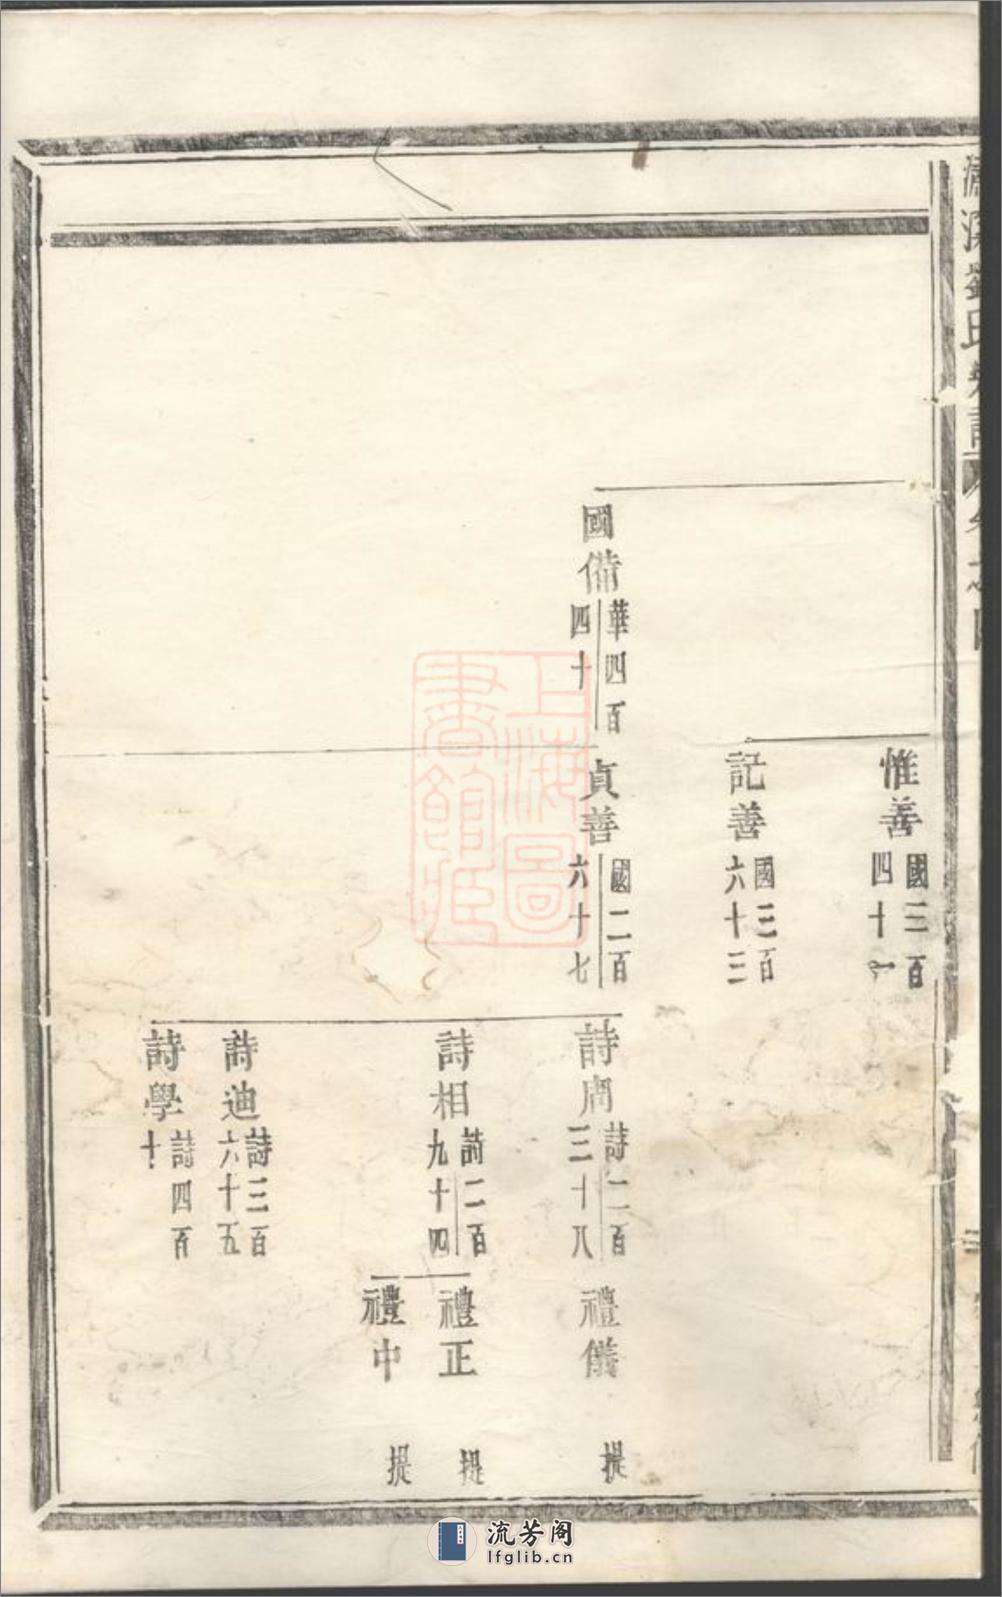 劉氏
惟善
國三百
四十一
記善
國三百
六十三
國備
華四百
四十
貞善
國二百
六十七
詩周
詩二百
三十八
禮儀
提
詩相
詩二百
九十四
禮正
提
禮中
提
詩迪
詩三百
六十五
詩學
詩四百
十
上海圖
書館藏
流芳阁
lfglib.cn